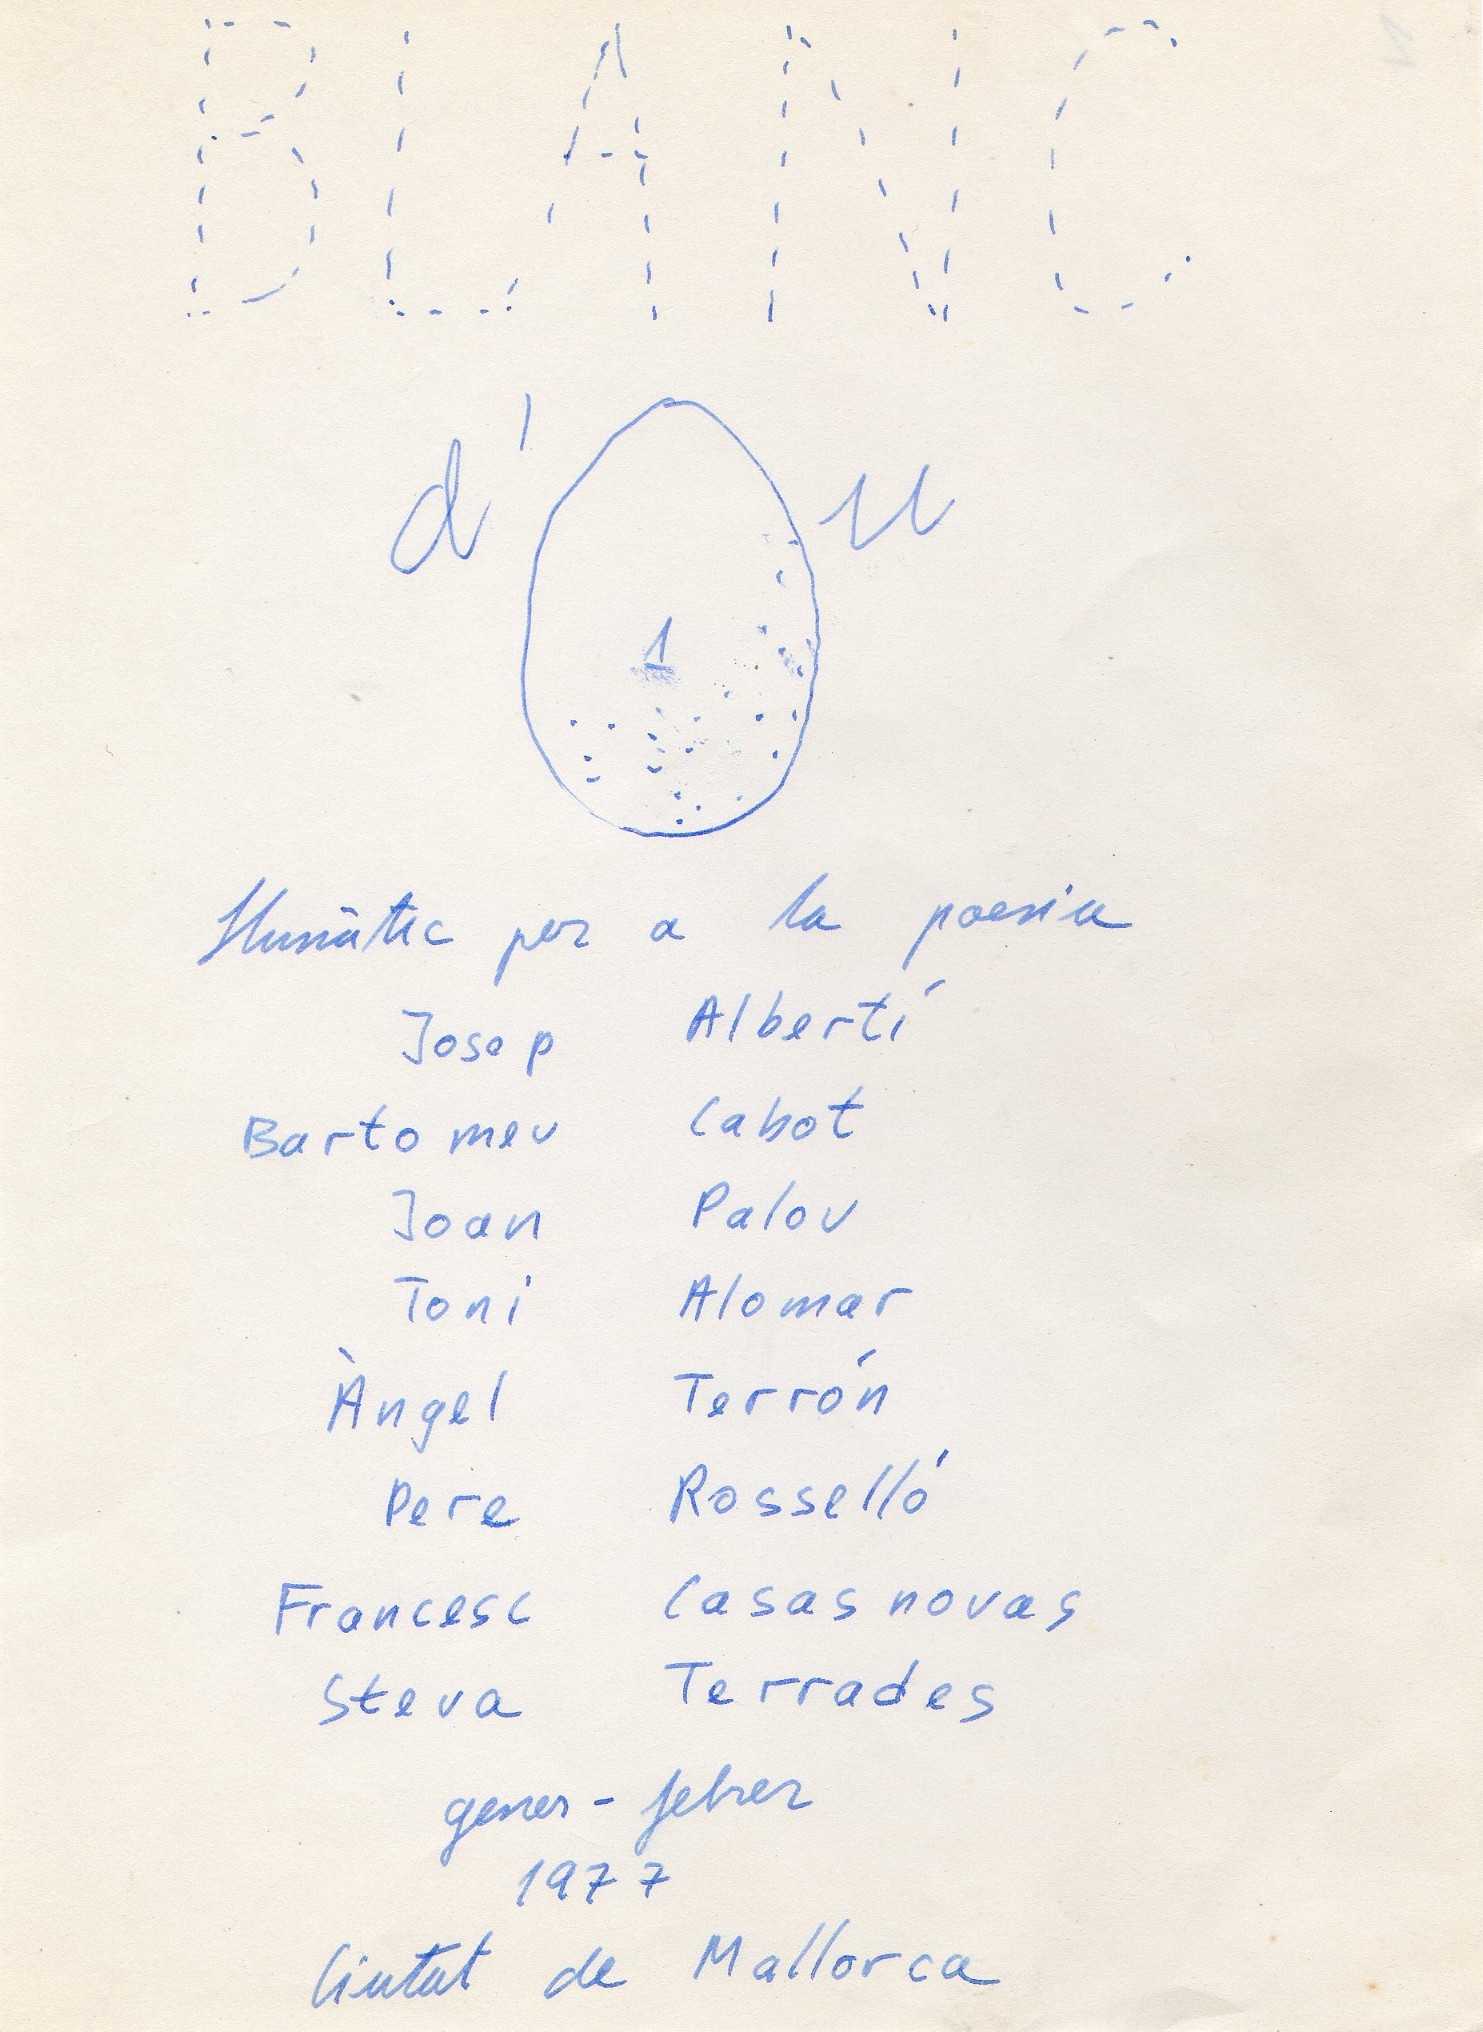 BLANC
d'Ou
1
Llunàtic per a la poesia
Josep Albertí
Bartomeu Cabot
Joan Palou
Toni Alomar
Àngel Terrón
Pere Rosselló
Francesc Casasnovas
Steva Terrades
gener-febrer
1977
Ciutat de Mallorca